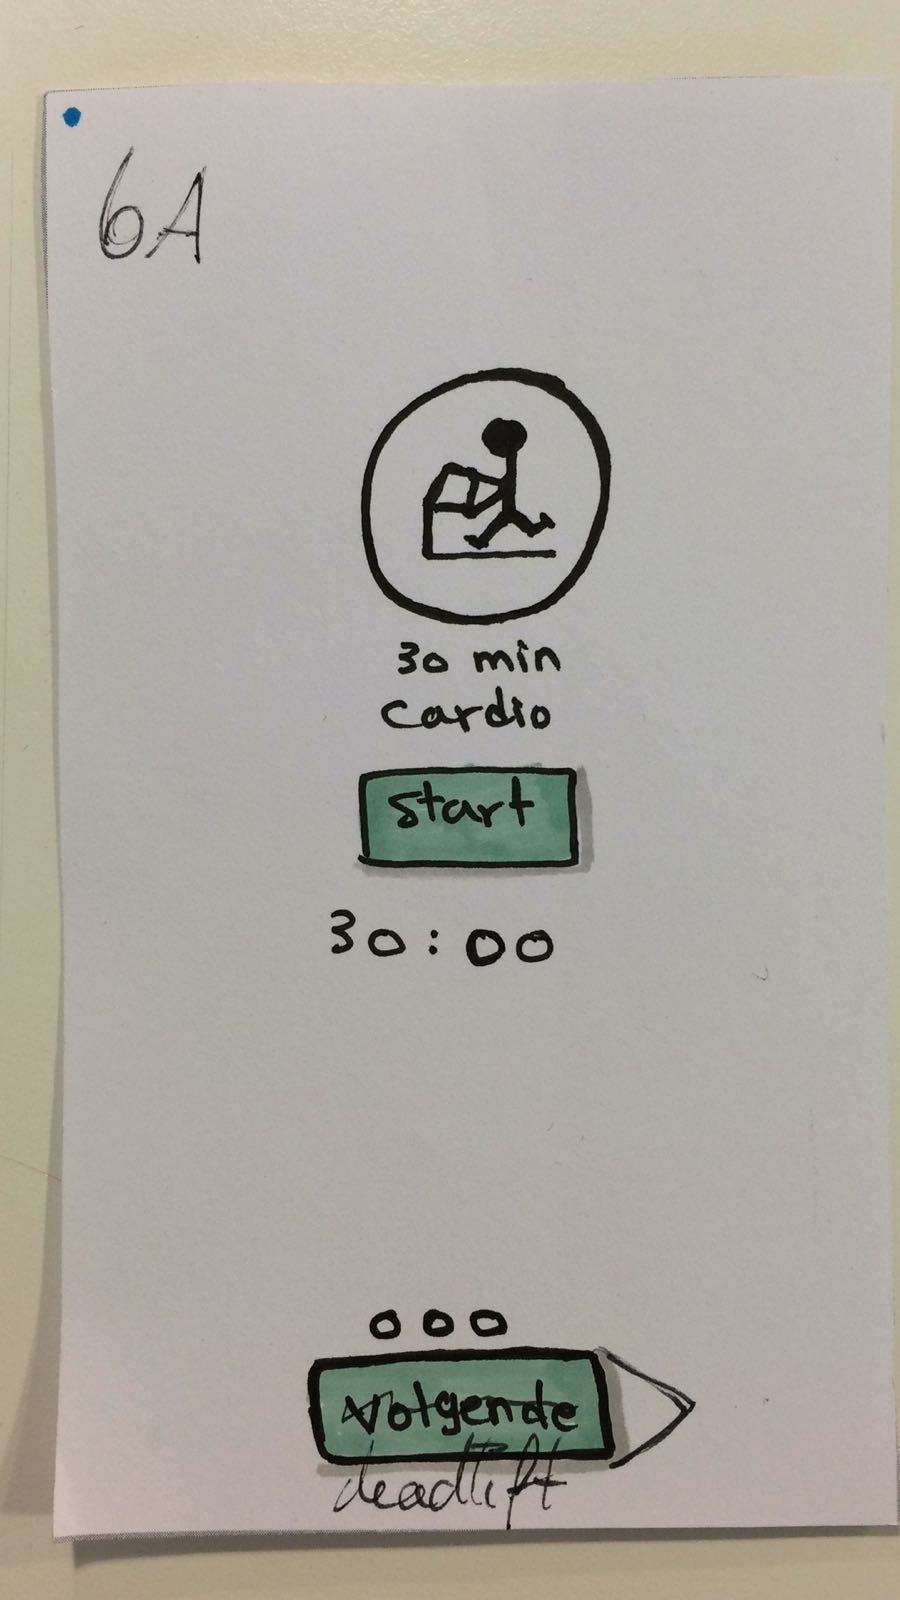 6A
30 min
cardio
start
30:00
volgende
deadlift